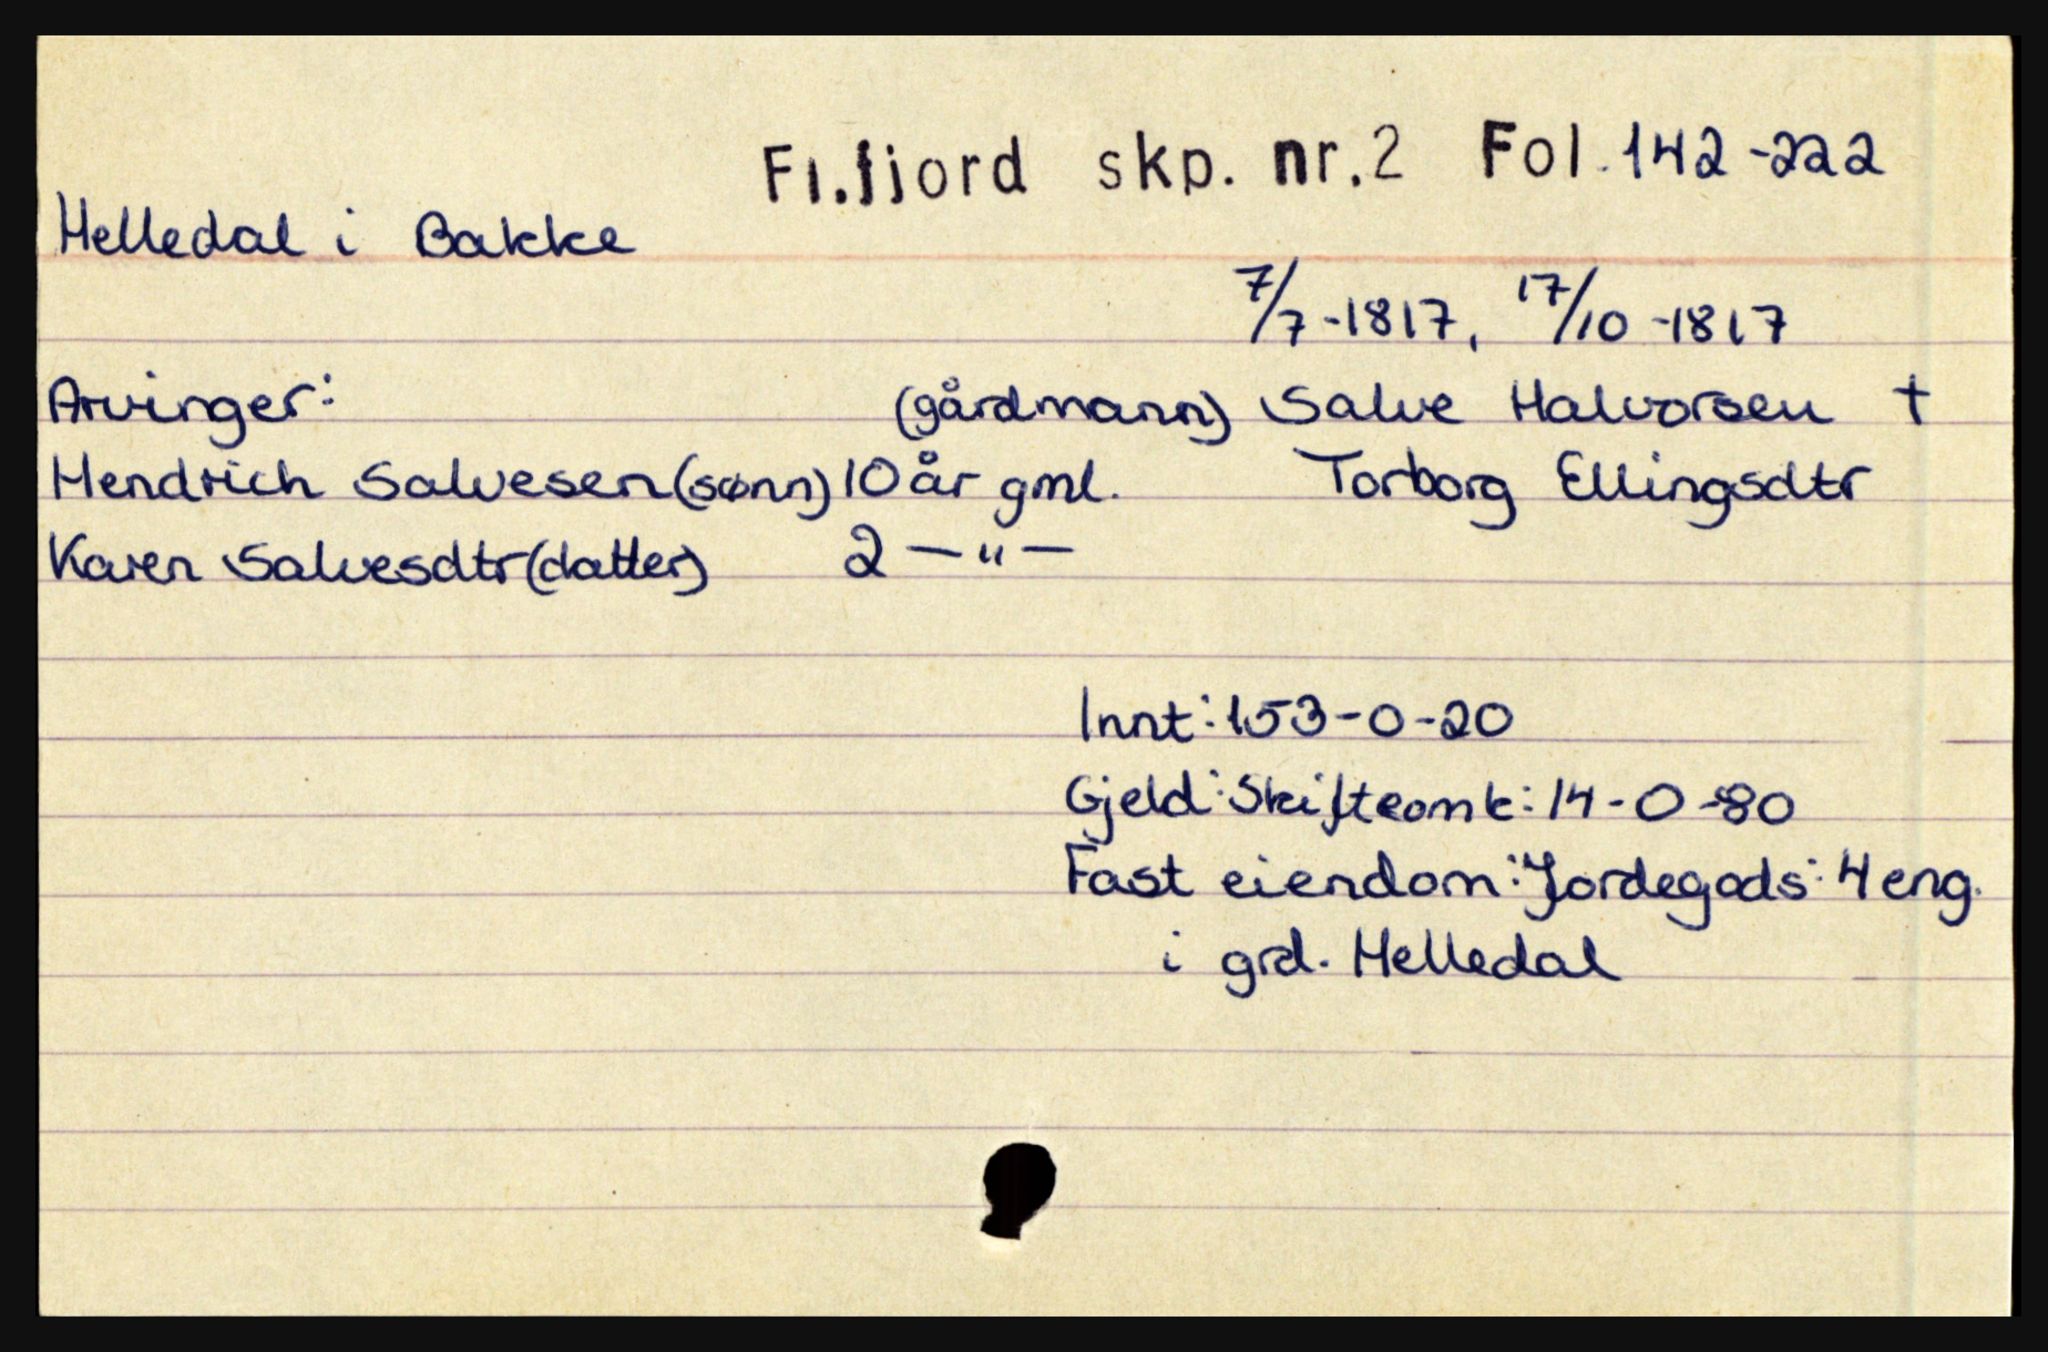 Fl.fjord skp. nr.2 Fol. 142-222
Helledal i Bakke
7/7-1817, 17/10-1817
Arvinger: (gårdmann) Salve Halvorsen †
Hendrich Salvesen (sønn) 10 år gml. Torborg Ellingsdtr
Karen Salvesdtr (datter) 2 — " —
Innt: 153-0-20
Gjeld: Skifteomk: 14-0-80
Fast eiendom: Jordegods: 4 eng.
i grd. Helledal